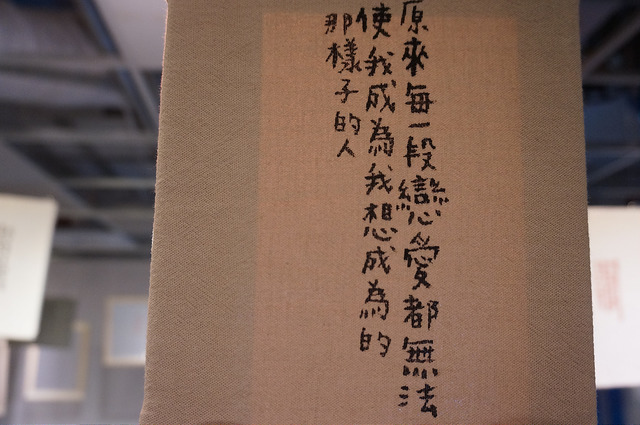 原來每一段戀愛都無法
使我成為我想成為的
那樣子的人